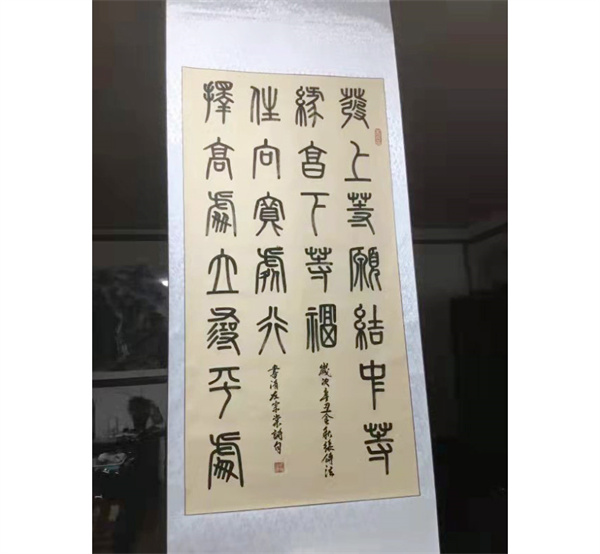 發上等願結中等
緣享下等福
擇高處立尋平處
住向寬處行
歲次辛丑金秋張研法
書清左宗棠詩句